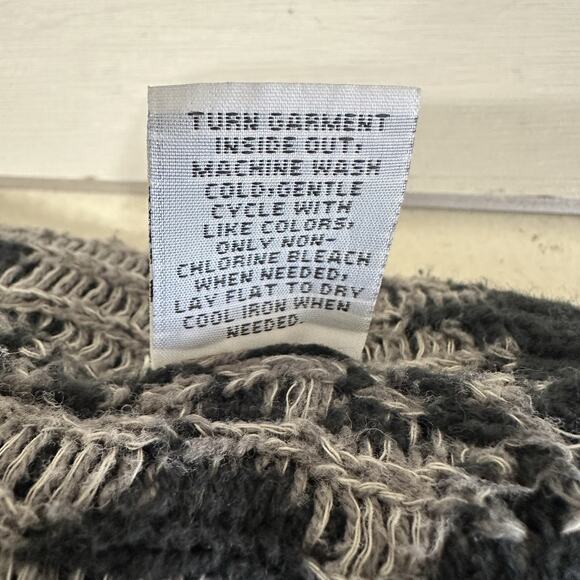 TURN GARMENT
INSIDE OUT,
MACHINE WASH
COLD,GENTLE
CYCLE WITH
LIKE COLORS,
ONLY NON-
CHLORINE BLEACH
WHEN NEEDED,
LAY FLAT TO DRY
COOL IRON WHEN
NEEDED.